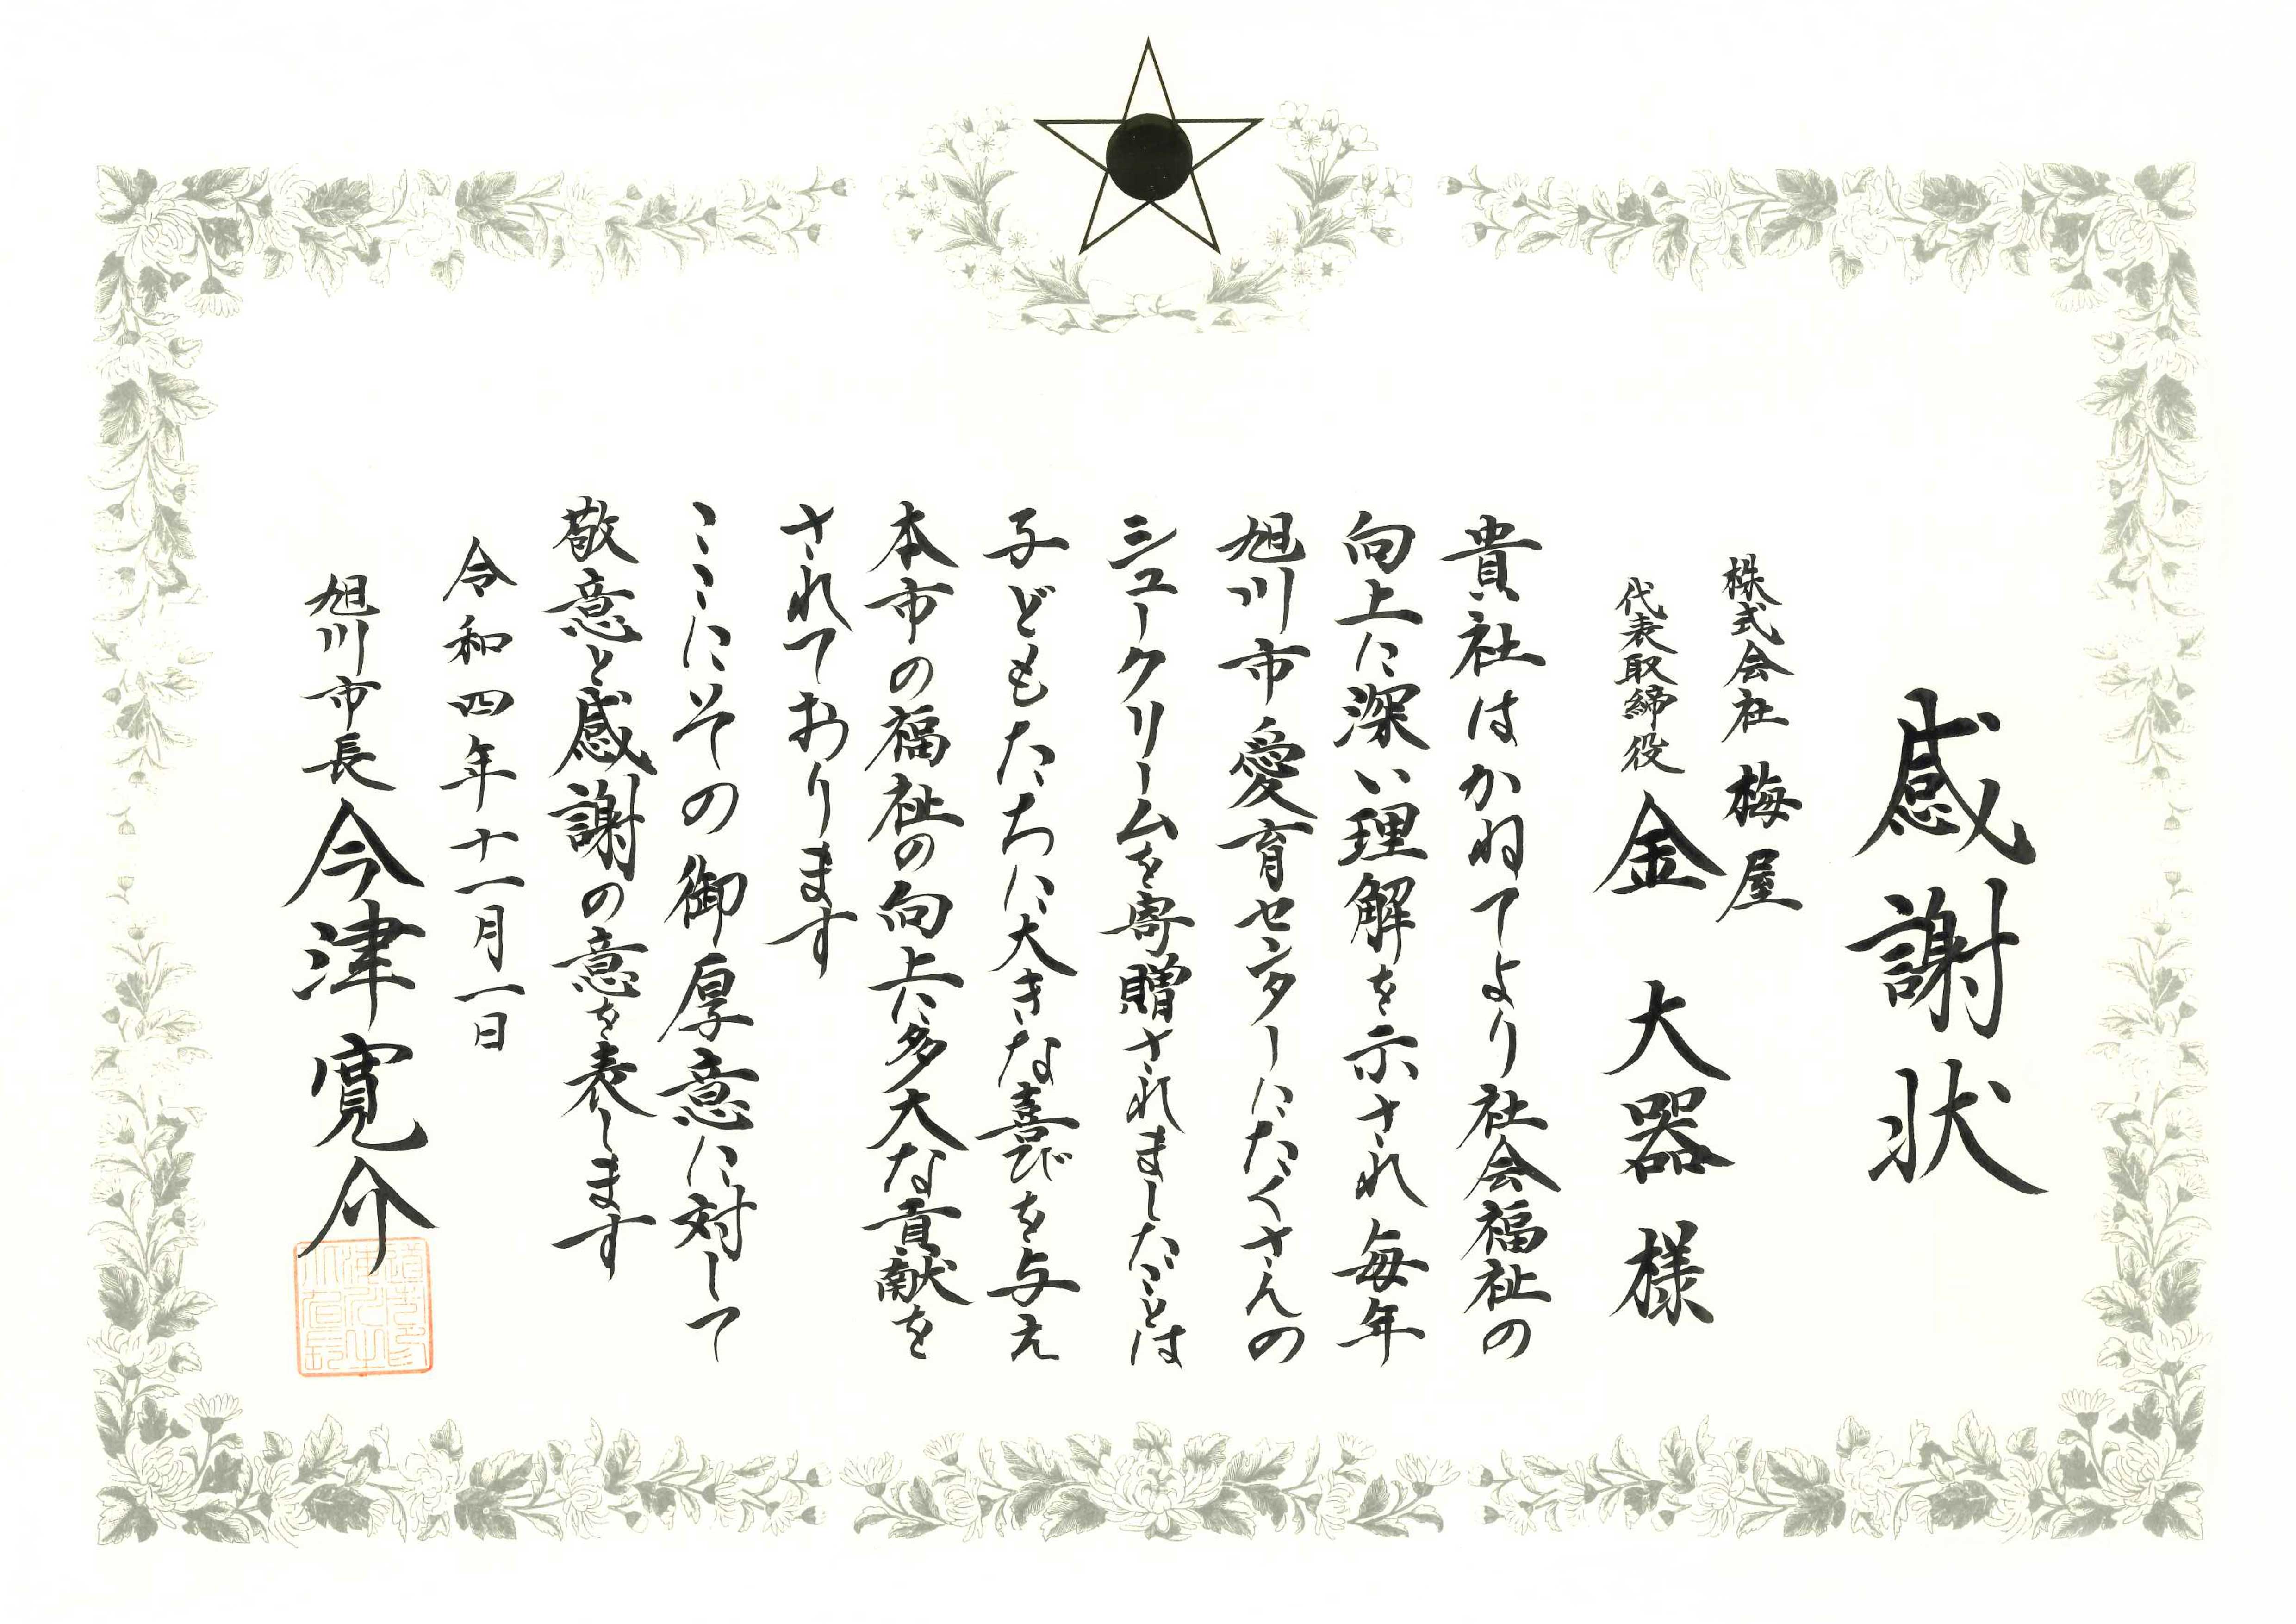 感謝状
株式会社 梅屋
代表取締役 金 大器 様
貴社はかねてより社会福祉の
向上に深い理解を示され毎年
旭川市愛育センターにたくさんの
シュークリームを寄贈されましたことは
子どもたちに大きな喜びを与え
本市の福祉の向上に多大な貢献を
されております
ここにその御厚意に対して
敬意と感謝の意を表します
令和四年十一月一日
旭川市長 今津寛介